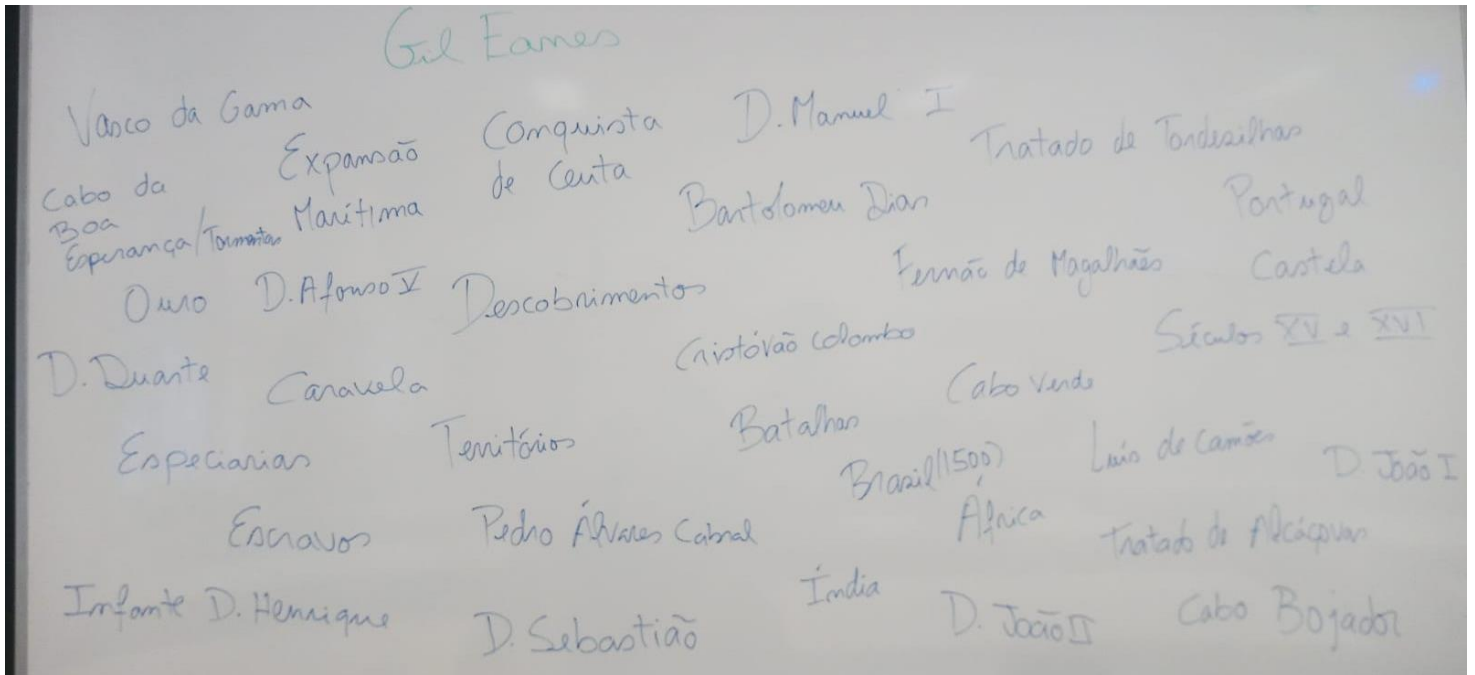 Gil Eanes
Vasco da Gama
Expansão Marítima
Conquista de Ceuta
D. Manuel I
Tratado de Tordesilhas
Cabo da
Boa
Esperança/Tormentas
Bartolomeu Dias
Portugal
Ouro
D. Afonso V
Descobrimentos
Fernão de Magalhães
Castela
D. Duarte
Caravela
Cristóvão Colombo
Séculos XV e XVI
Especiarias
Territórios
Batalhas
Cabo Verde
Brasil (1500)
Luís de Camões
D. João I
Escravos
Pedro Álvares Cabral
África
Tratado de Alcáçovas
Infante D. Henrique
D. Sebastião
Índia
D. João II
Cabo Bojador